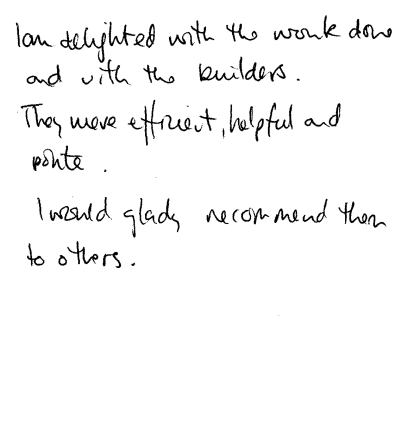 I am delighted with the work done
and with the builders.
They were efficient, helpful and
polite.
I would gladly recommend them
to others.